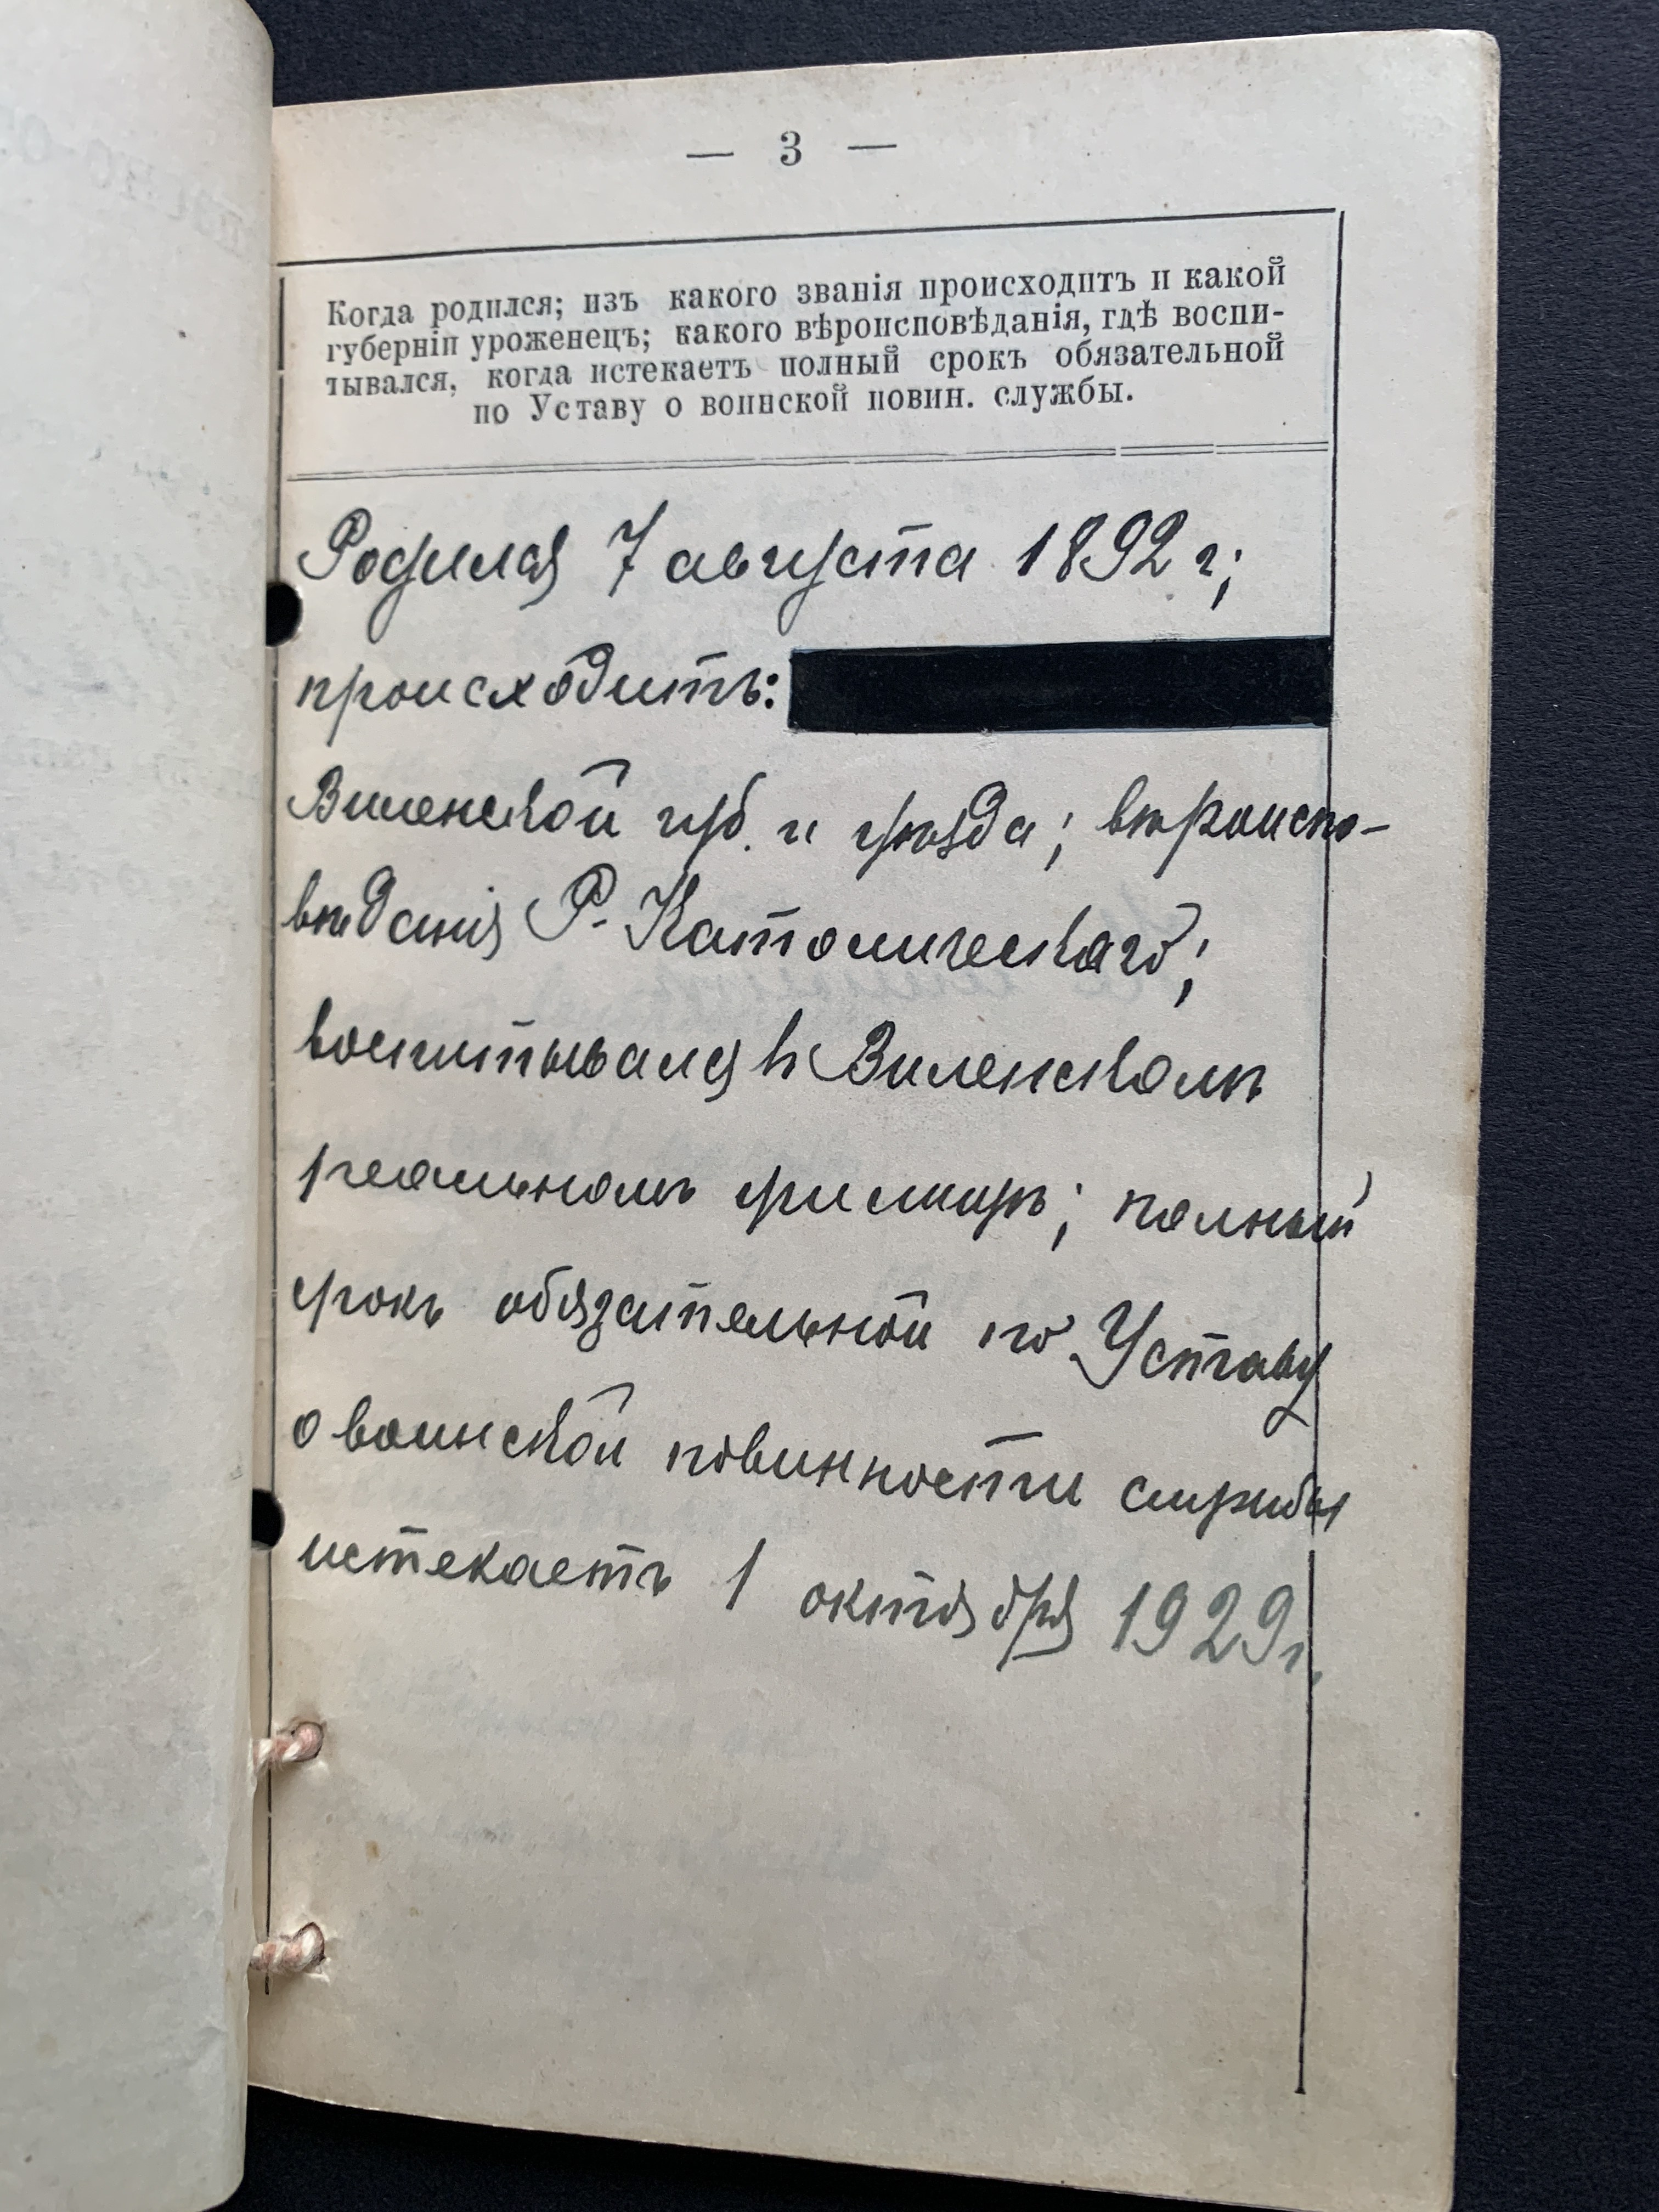 — 3 —
Когда родился; изъ какого званія происходитъ и какой
губерніи уроженецъ; какого вѣроисповѣданія, гдѣ воспи-
тывался, когда истекаетъ полный срокъ обязательной
по Уставу о воинской повин. службы.
Родился 7 августа 1892 г;
происходитъ:
Виленской губ. и уѣзда; вѣроиспо-
вѣданія Р. Католическаго;
воспитывался въ Виленскомъ
реальномъ училищѣ; полный
срокъ обязательной по Уставу
о воинской повинности службы
истекаетъ 1 октября 1929 г.